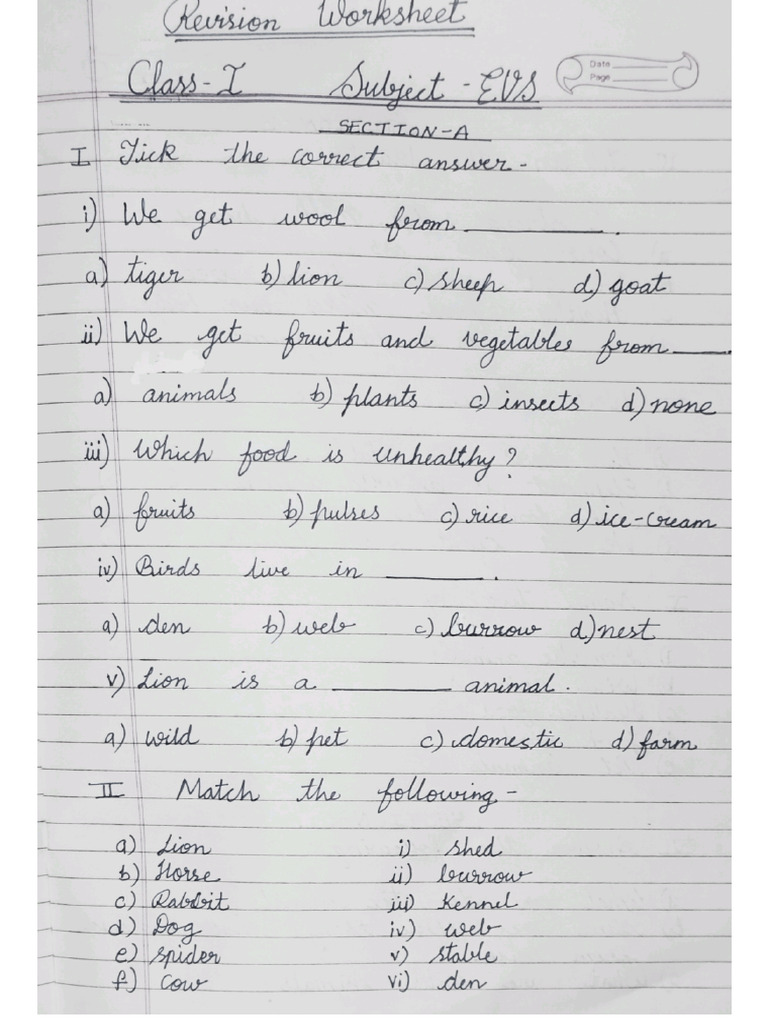 Revision Worksheet
Class-I Subject-EVS
Date
Page
SECTION-A
I Tick the correct answer-
i) We get wool from ________.
a) tiger b) lion c) sheep d) goat
ii) We get fruits and vegetables from ____.
a) animals b) plants c) insects d) none
iii) Which food is unhealthy?
a) fruits b) pulses c) rice d) ice-cream
iv) Birds live in ________.
a) den b) web c) burrow d) nest
v) Lion is a ________ animal.
a) wild b) pet c) domestic d) farm
II Match the following-
a) Lion i) shed
b) Horse ii) burrow
c) Rabbit iii) Kennel
d) Dog iv) web
e) spider v) stable
f) cow vi) den